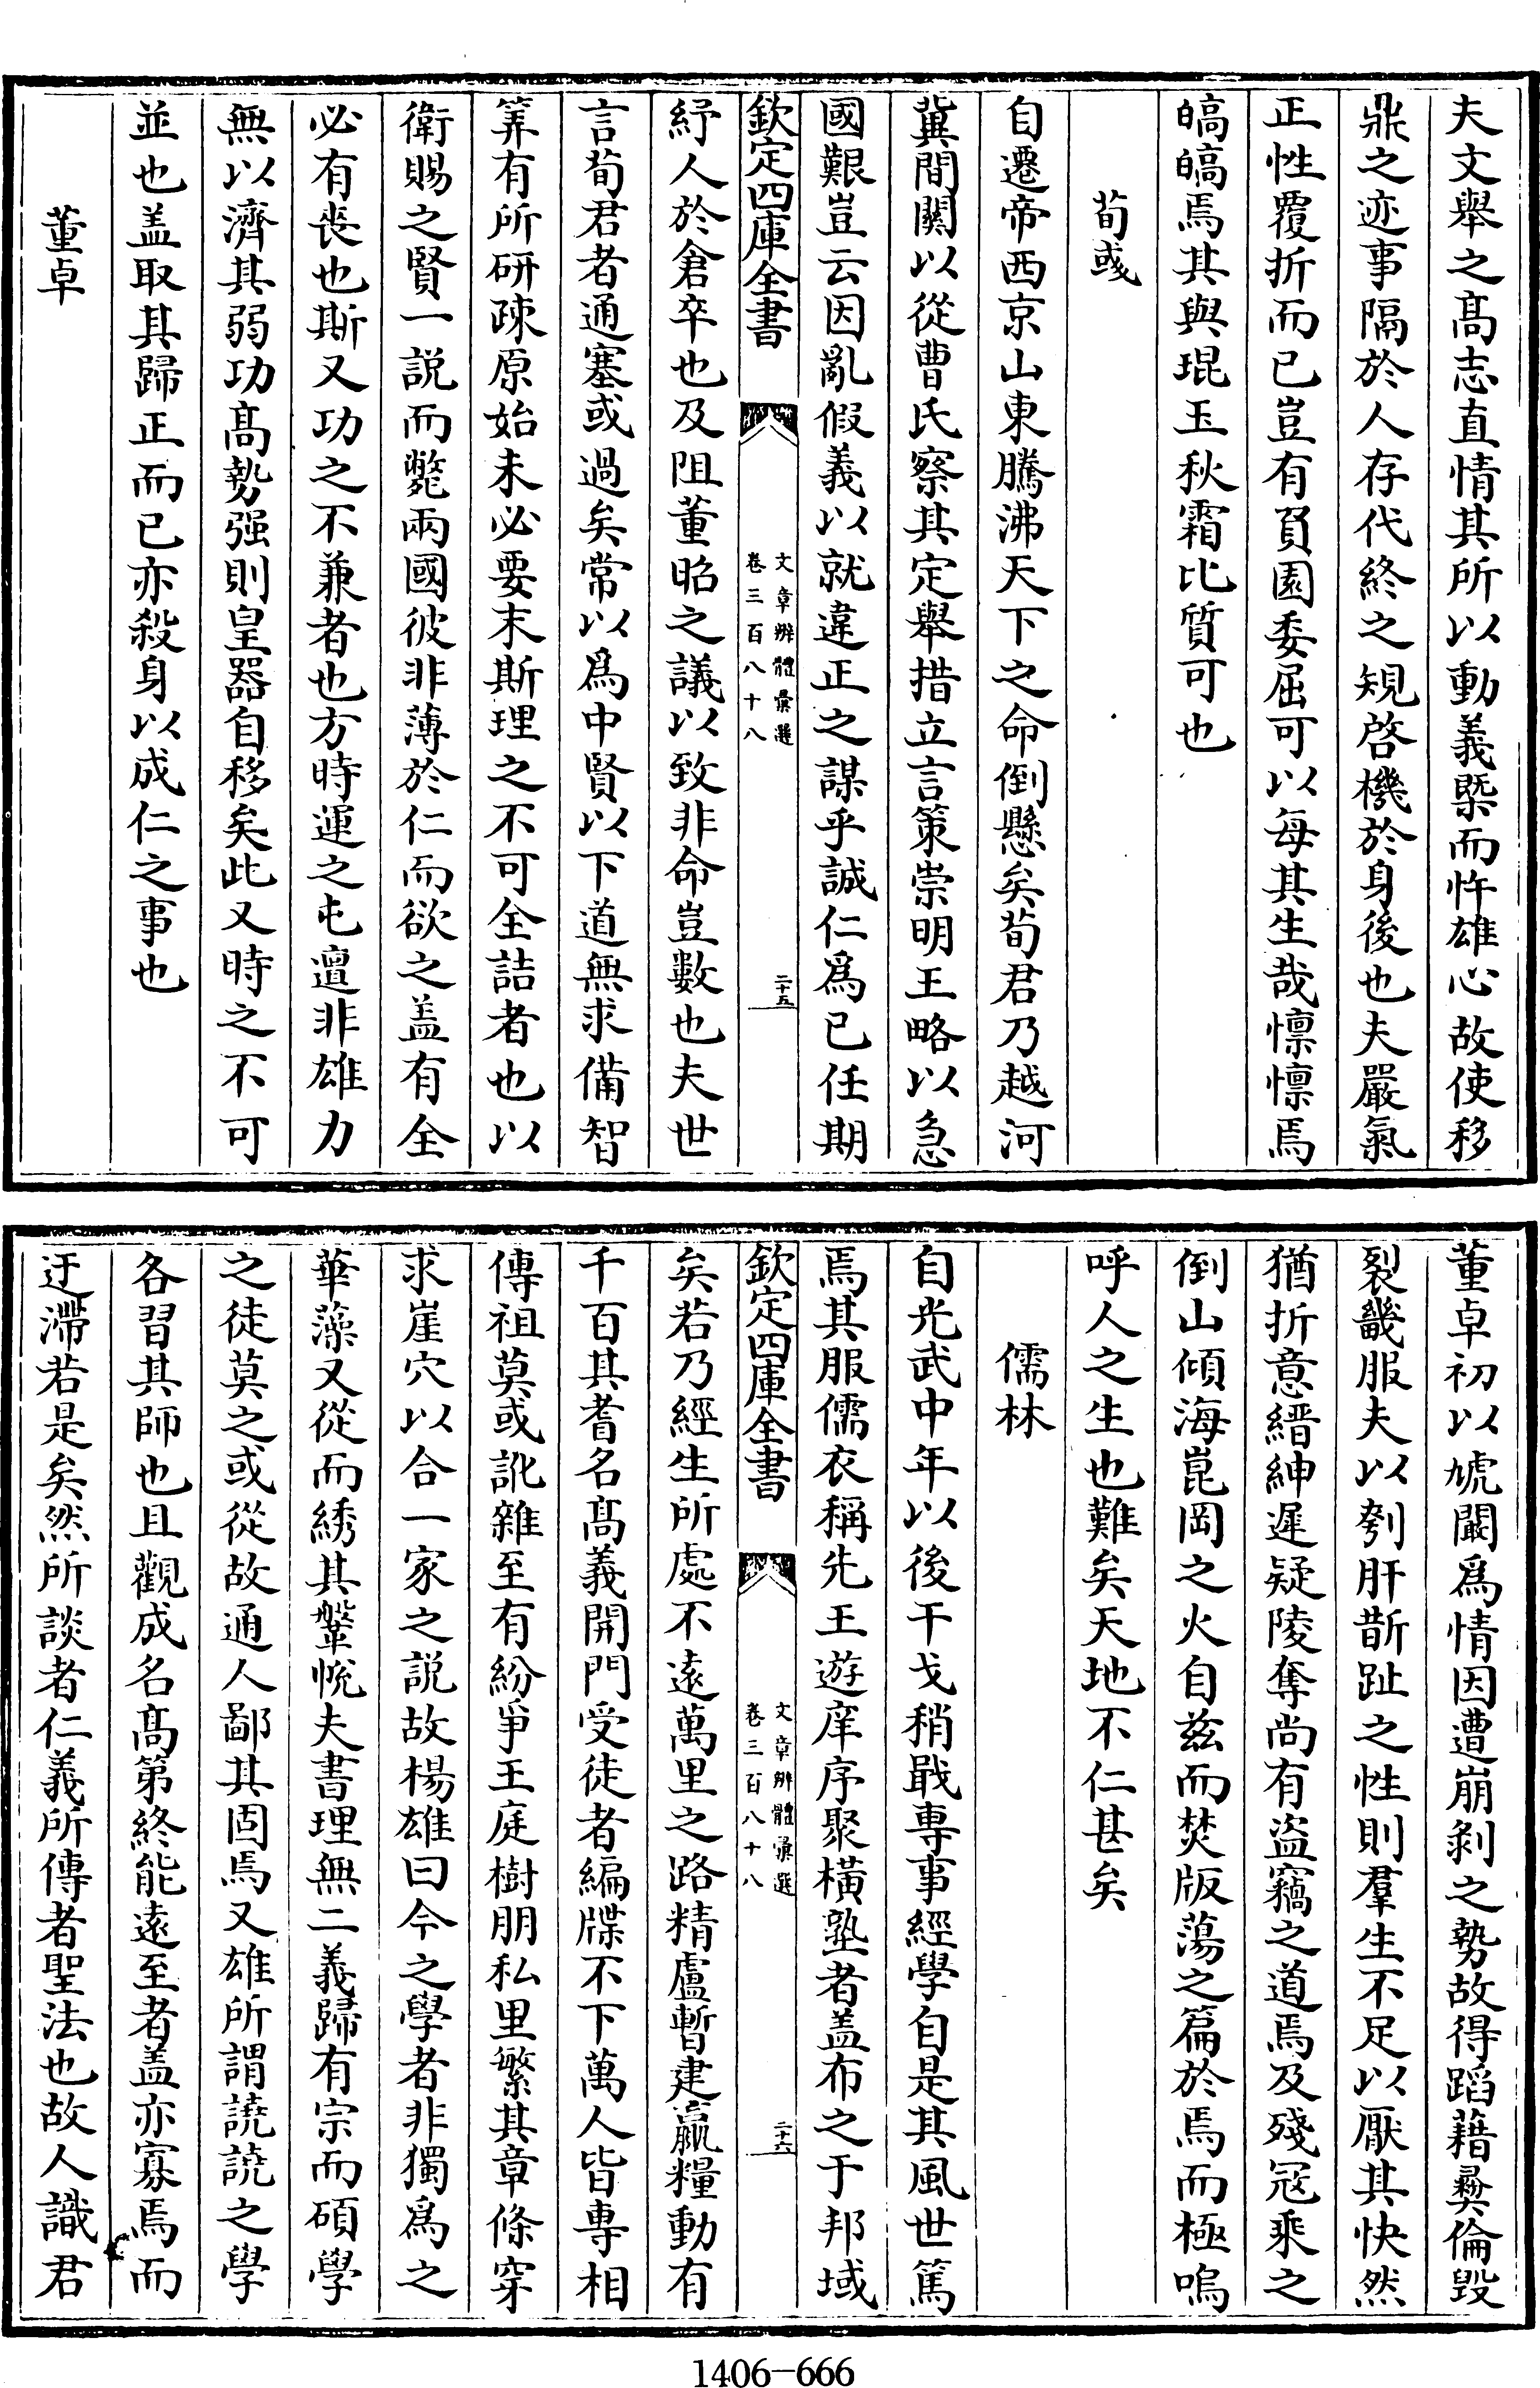 夫文舉之髙志直情其所以動義槩而忤雄心故使移
鼎之迹事隔於人存代終之規啓機於身後也夫嚴氣
正性覆折而已豈有員園委屈可以每其生哉懍懍焉
皜皜焉其與琨玉秋霜比質可也
荀彧
自遷帝西京山東騰沸天下之命倒懸矣荀君乃越河
冀間關以從曹氏察其定舉措立言策崇明王略以急
國艱豈云因亂假義以就違正之謀乎誠仁爲已任期
欽定四庫全書
文章辨體彚選
卷三百八十八
二十五
紓人於倉卒也及阻董昭之議以致非命豈數也夫世
言荀君者通塞或過矣常以爲中賢以下道無求備智
筭有所研疎原始未必要末斯理之不可全詰者也以
衛賜之賢一説而斃兩國彼非薄於仁而欲之盖有全
必有喪也斯又功之不兼者也方時運之屯邅非雄力
無以濟其弱功髙勢强則皇器自移矣此又時之不可
並也盖取其歸正而已亦殺身以成仁之事也
董卓
董卓初以虓闞爲情因遭崩剥之勢故得蹈藉彛倫毀
裂畿服夫以刳肝斮趾之性則羣生不足以厭其快然
猶折意縉紳遲疑陵奪尚有盗竊之道焉及殘冦乘之
倒山傾海崑岡之火自兹而焚版蕩之篇於焉而極嗚
呼人之生也難矣天地不仁甚矣
儒林
自光武中年以後干戈稍戢専事經學自是其風世篤
焉其服儒衣稱先王遊庠序聚横塾者盖布之于邦域
欽定四庫全書
文章辨體彚選
卷三百八十八
二十六
矣若乃經生所處不逺萬里之路精廬暫建贏糧動有
千百其耆名髙義開門受徒者編牒不下萬人皆專相
傳祖莫或訛雜至有紛爭王庭樹朋私里繁其章條穿
求崖穴以合一家之説故楊雄曰今之學者非獨爲之
華藻又從而綉其鞶帨夫書理無二義歸有宗而碩學
之徒莫之或從故通人鄙其固焉又雄所謂譊譊之學
各習其師也且觀成名髙第終能逺至者盖亦寡焉而
迂滯若是矣然所談者仁義所傳者聖法也故人識君
1406-666